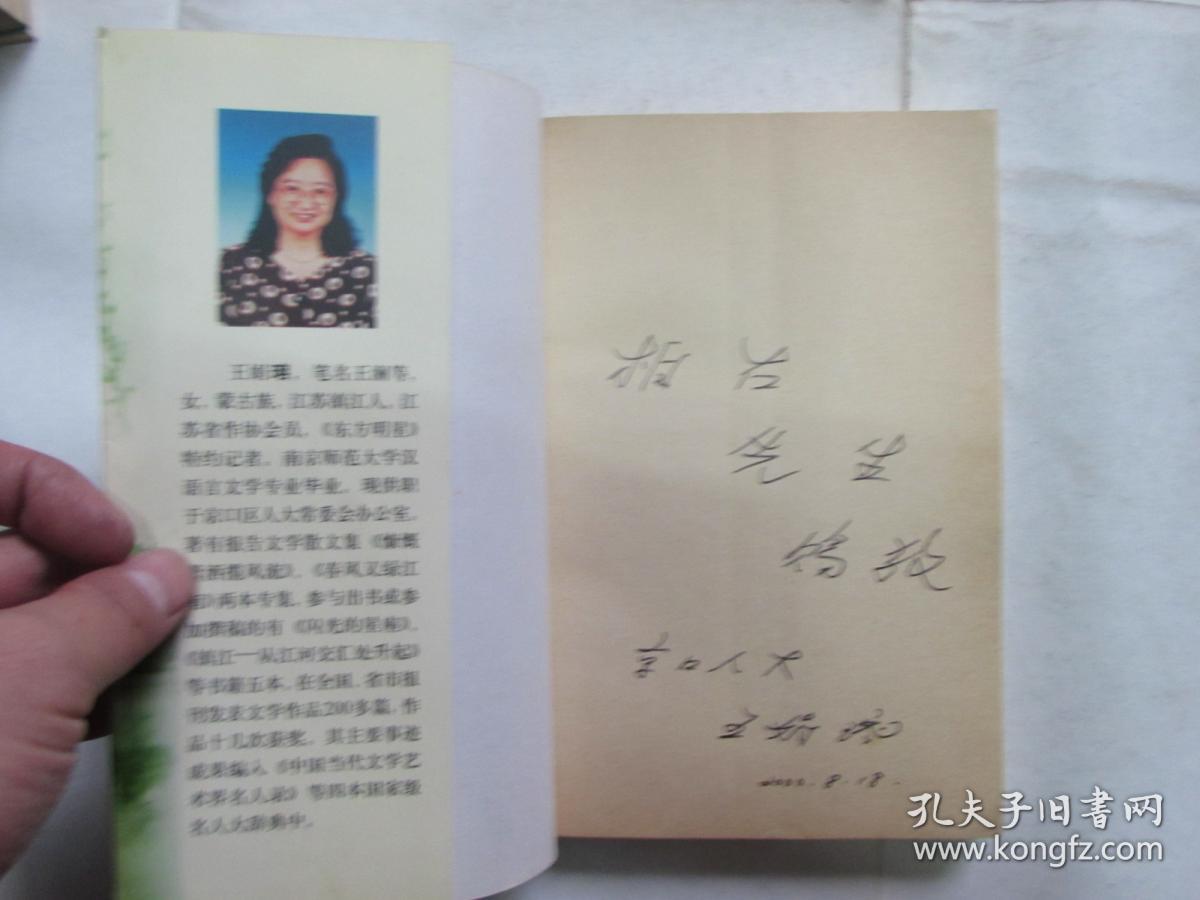 王娟瑶，笔名王斓等，
女，蒙古族，江苏镇江人，江
苏省作协会员，《东方明星》
特约记者。南京师范大学汉
语言文学专业毕业，现供职
于京口区人大常委会办公室。
著有报告文学散文集《慷慨
揽风流》、《春风又绿江
》两本专集，参与出书或参
加撰稿的有《闪光的星座》、
《镇江—从江河交汇处升起》
等书籍五本。在全国、省市报
刊发表文学作品200多篇，作
品十几次获奖。其主要事迹
成果编入《中国当代文学艺
术界名人录》等四本国家级
名人大辞典中。
先生
京口人大
8.18.
孔夫子旧书网
www.kongfz.com